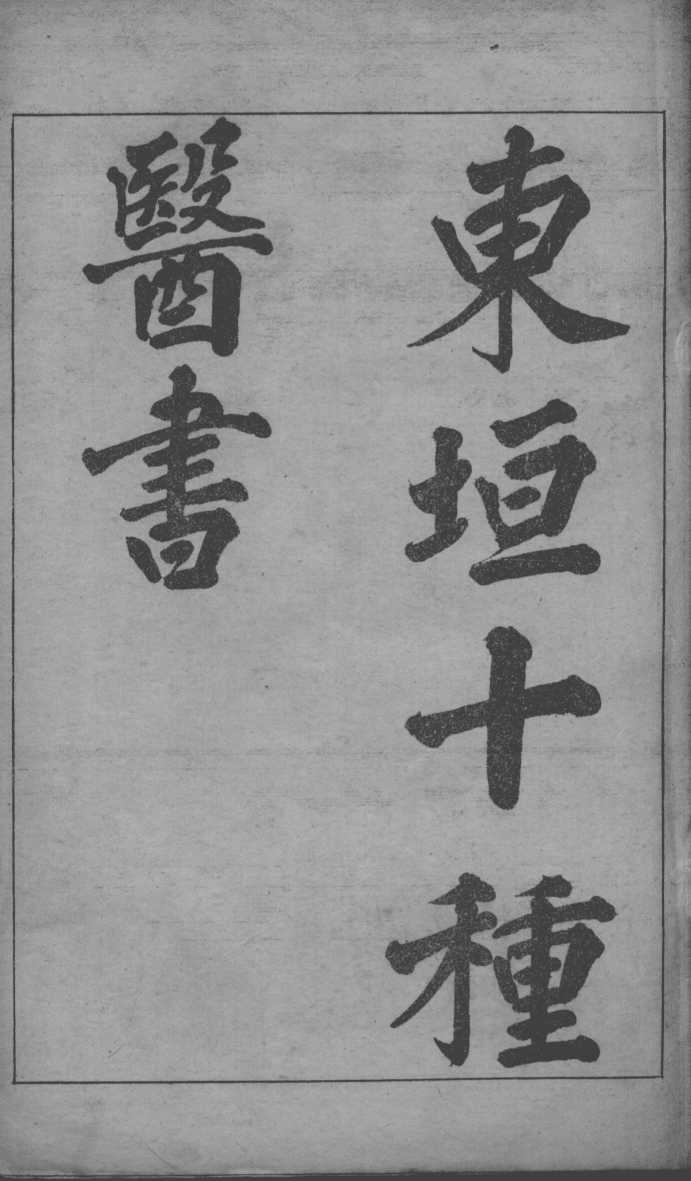 東垣十種
醫書